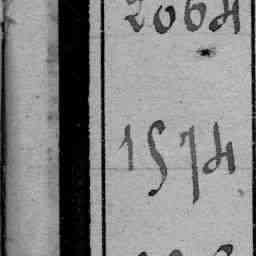 2064
1574